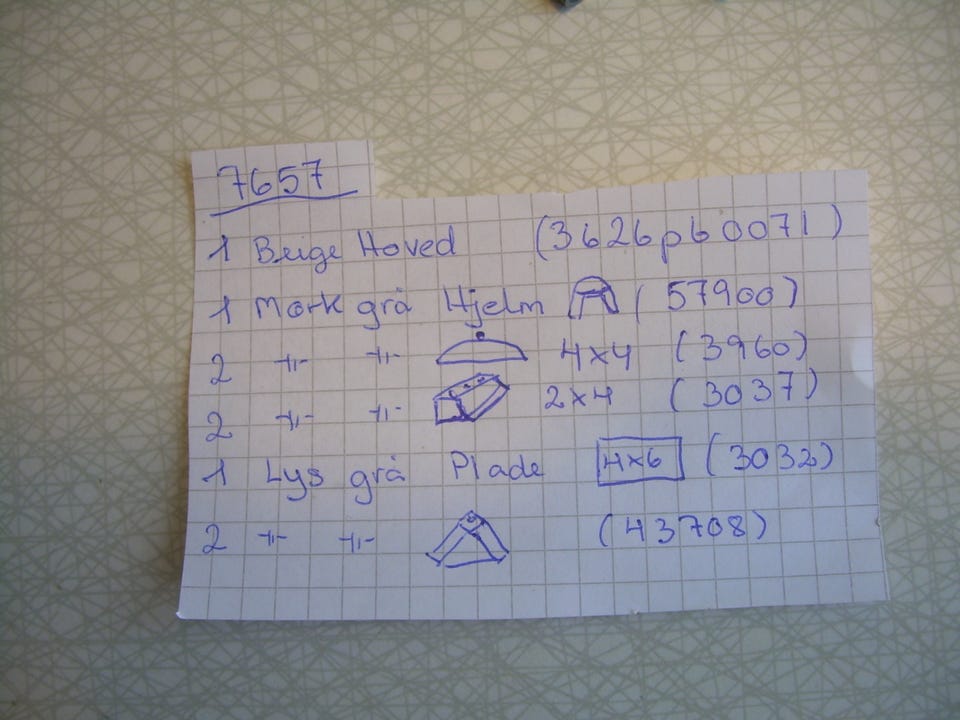 7657
1 Beige Hoved (3626pb0071)
1 Mørk grå Hjelm (57900)
2 -||- -||- 4x4 (3960)
2 -||- -||- 2x4 (3037)
1 Lys grå Plade 4x6 (3032)
2 -||- -||- (43708)